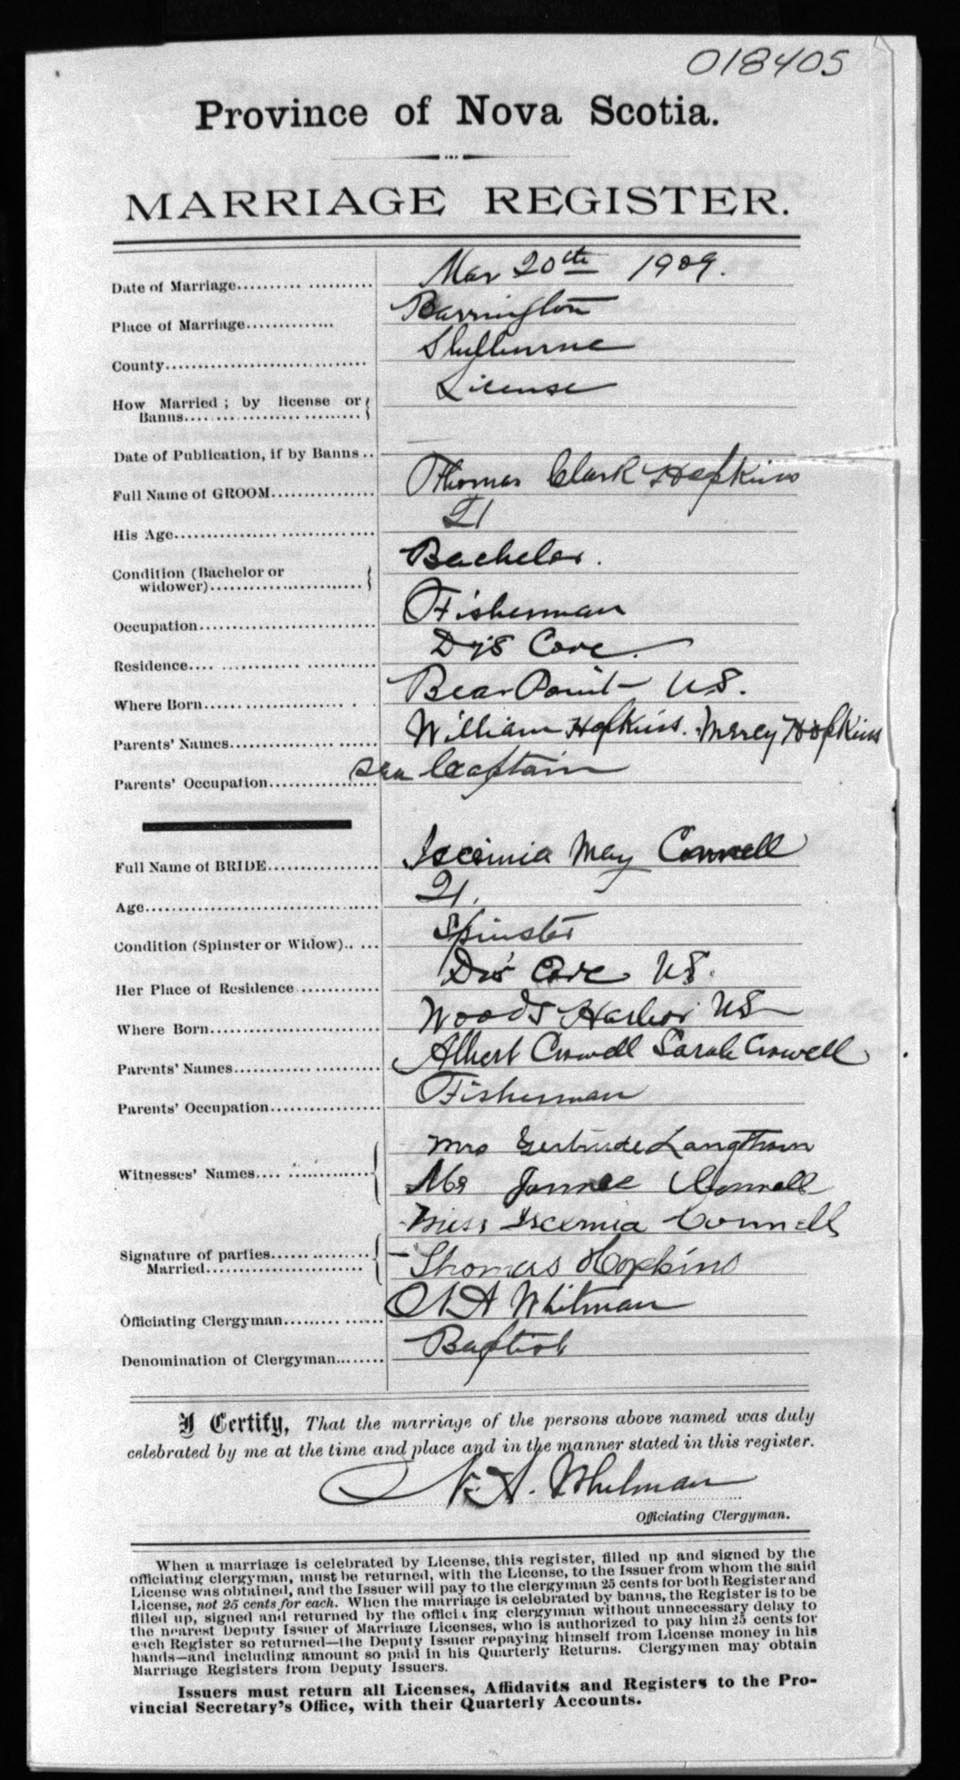 018405
Province of Nova Scotia.
MARRIAGE REGISTER.
Date of Marriage Mar 20th 1909.
Place of Marriage Barrington
County Shelburne
How Married; by license or Banns License
Date of Publication, if by Banns
Full Name of GROOM Thomas Clark Hopkins
His Age 21
Condition (Bachelor or widower) Bachelor.
Occupation Fisherman
Residence Cove.
Where Born Bear Point NS.
Parents' Names William Hopkins. Mercy Hopkins
Parents' Occupation Sea Captain
Full Name of BRIDE May
Age 21.
Condition (Spinster or Widow) Spinster
Her Place of Residence Cove NS.
Where Born Woods Harbor NS
Parents' Names Albert Crowell Sarah Crowell
Parents' Occupation Fisherman
Witnesses' Names Mrs Gertrude
Mr
Signature of parties Married Miss
Thomas Hopkins
Officiating Clergyman A Whitman
Denomination of Clergyman Baptist
I Certify, That the marriage of the persons above named was duly
celebrated by me at the time and place and in the manner stated in this register.
A. Whitman
Officiating Clergyman.
When a marriage is celebrated by License, this register, filled up and signed by the
officiating clergyman, must be returned, with the License, to the Issuer from whom the said
License was obtained, and the Issuer will pay to the clergyman 25 cents for both Register and
License, not 25 cents for each. When the marriage is celebrated by banns, the Register is to be
filled up, signed and returned by the officiating clergyman without unnecessary delay to
the nearest Deputy Issuer of Marriage Licenses, who is authorized to pay him 25 cents for
each Register so returned—the Deputy Issuer repaying himself from License money in his
hands—and including amount so paid in his Quarterly Returns. Clergymen may obtain
Marriage Registers from Deputy Issuers.
Issuers must return all Licenses, Affidavits and Registers to the Pro-
vincial Secretary's Office, with their Quarterly Accounts.